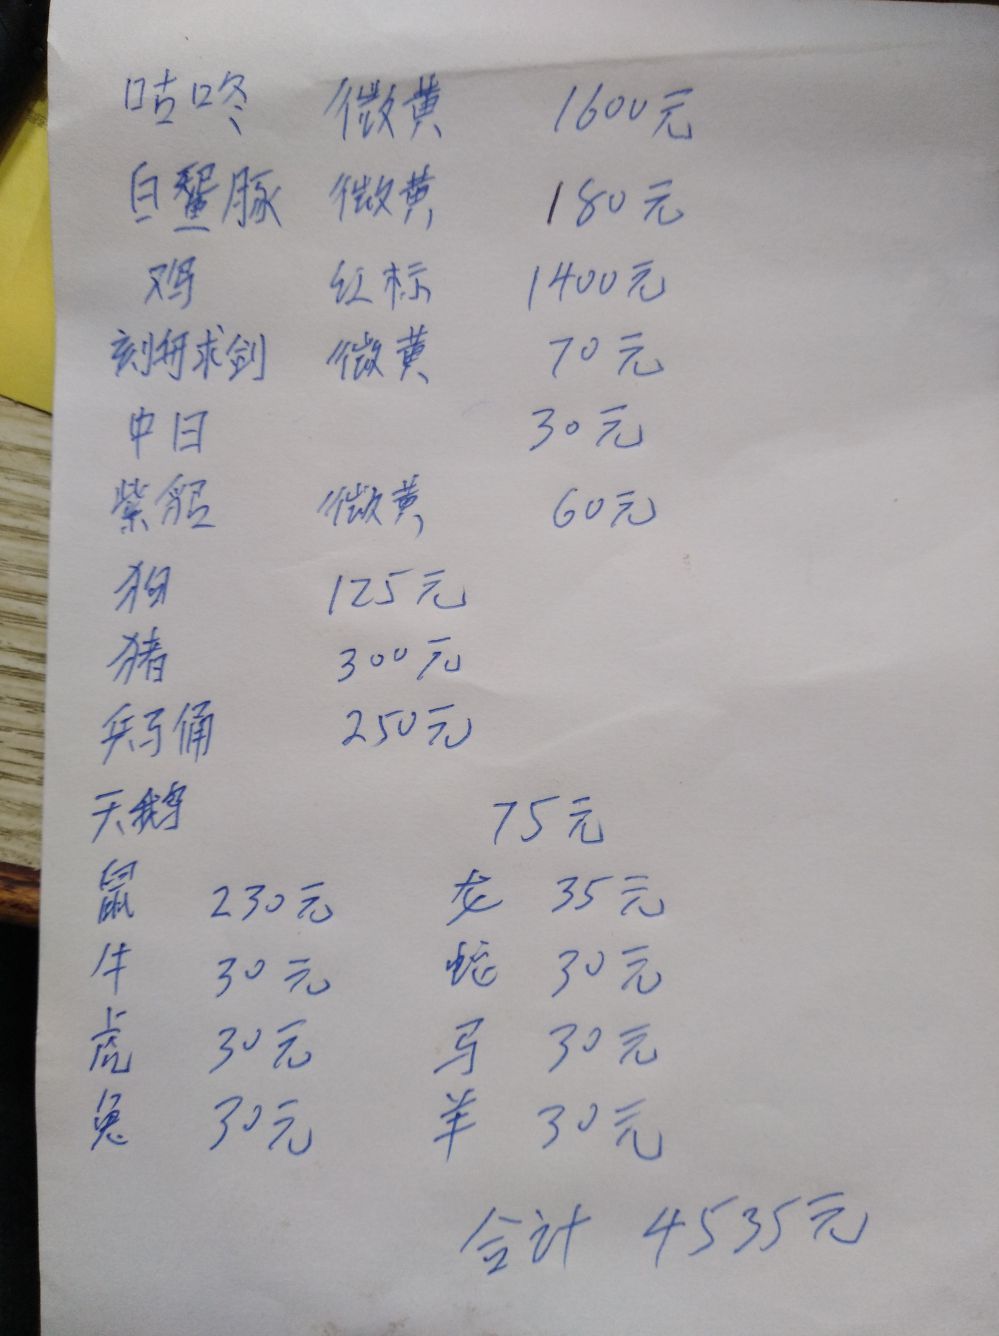 咕咚 微黄 1600元
白暨豚 微黄 180元
鸡 红标 1400元
刻舟求剑 微黄 70元
中日 30元
紫貂 微黄 60元
狗 125元
猪 300元
兵马俑 250元
天鹅 75元
鼠 230元 龙 35元
牛 30元 蛇 30元
虎 30元 马 30元
兔 30元 羊 30元
合计 4535元